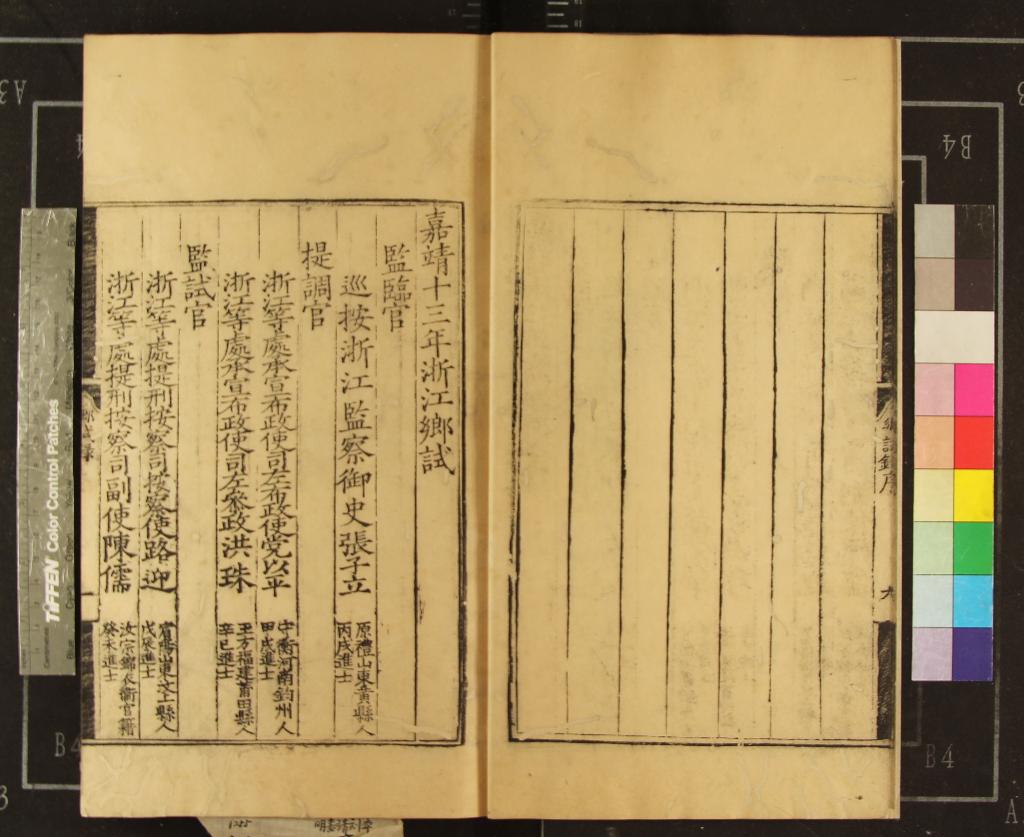 鄉試錄序
九
嘉靖十三年浙江鄉試
監臨官
巡按浙江監察御史張子立
原禮山東黃縣人
丙戌進士
提調官
浙江等處承宣布政使司左布政使党以平
守衡河南鈞州人
甲戌進士
浙江等處承宣布政使司左參政洪珠
玉方福建莆田縣人
辛巳進士
監試官
浙江等處提刑按察司按察使路迎
賓陽山東汶上縣人
戊辰進士
浙江等處提刑按察司副使陳儒
汝宗錦衣衛官籍
癸未進士
鄉試錄
一
TIFFEN Color Control Patches
B4
B4
B4
A3